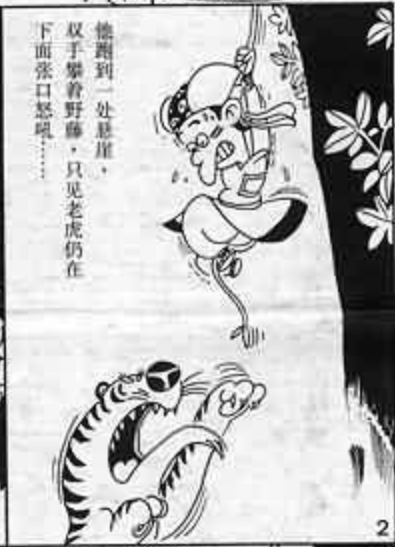 他跑到一处悬崖，
双手攀着野藤，只见老虎仍在
下面张口怒吼……
2